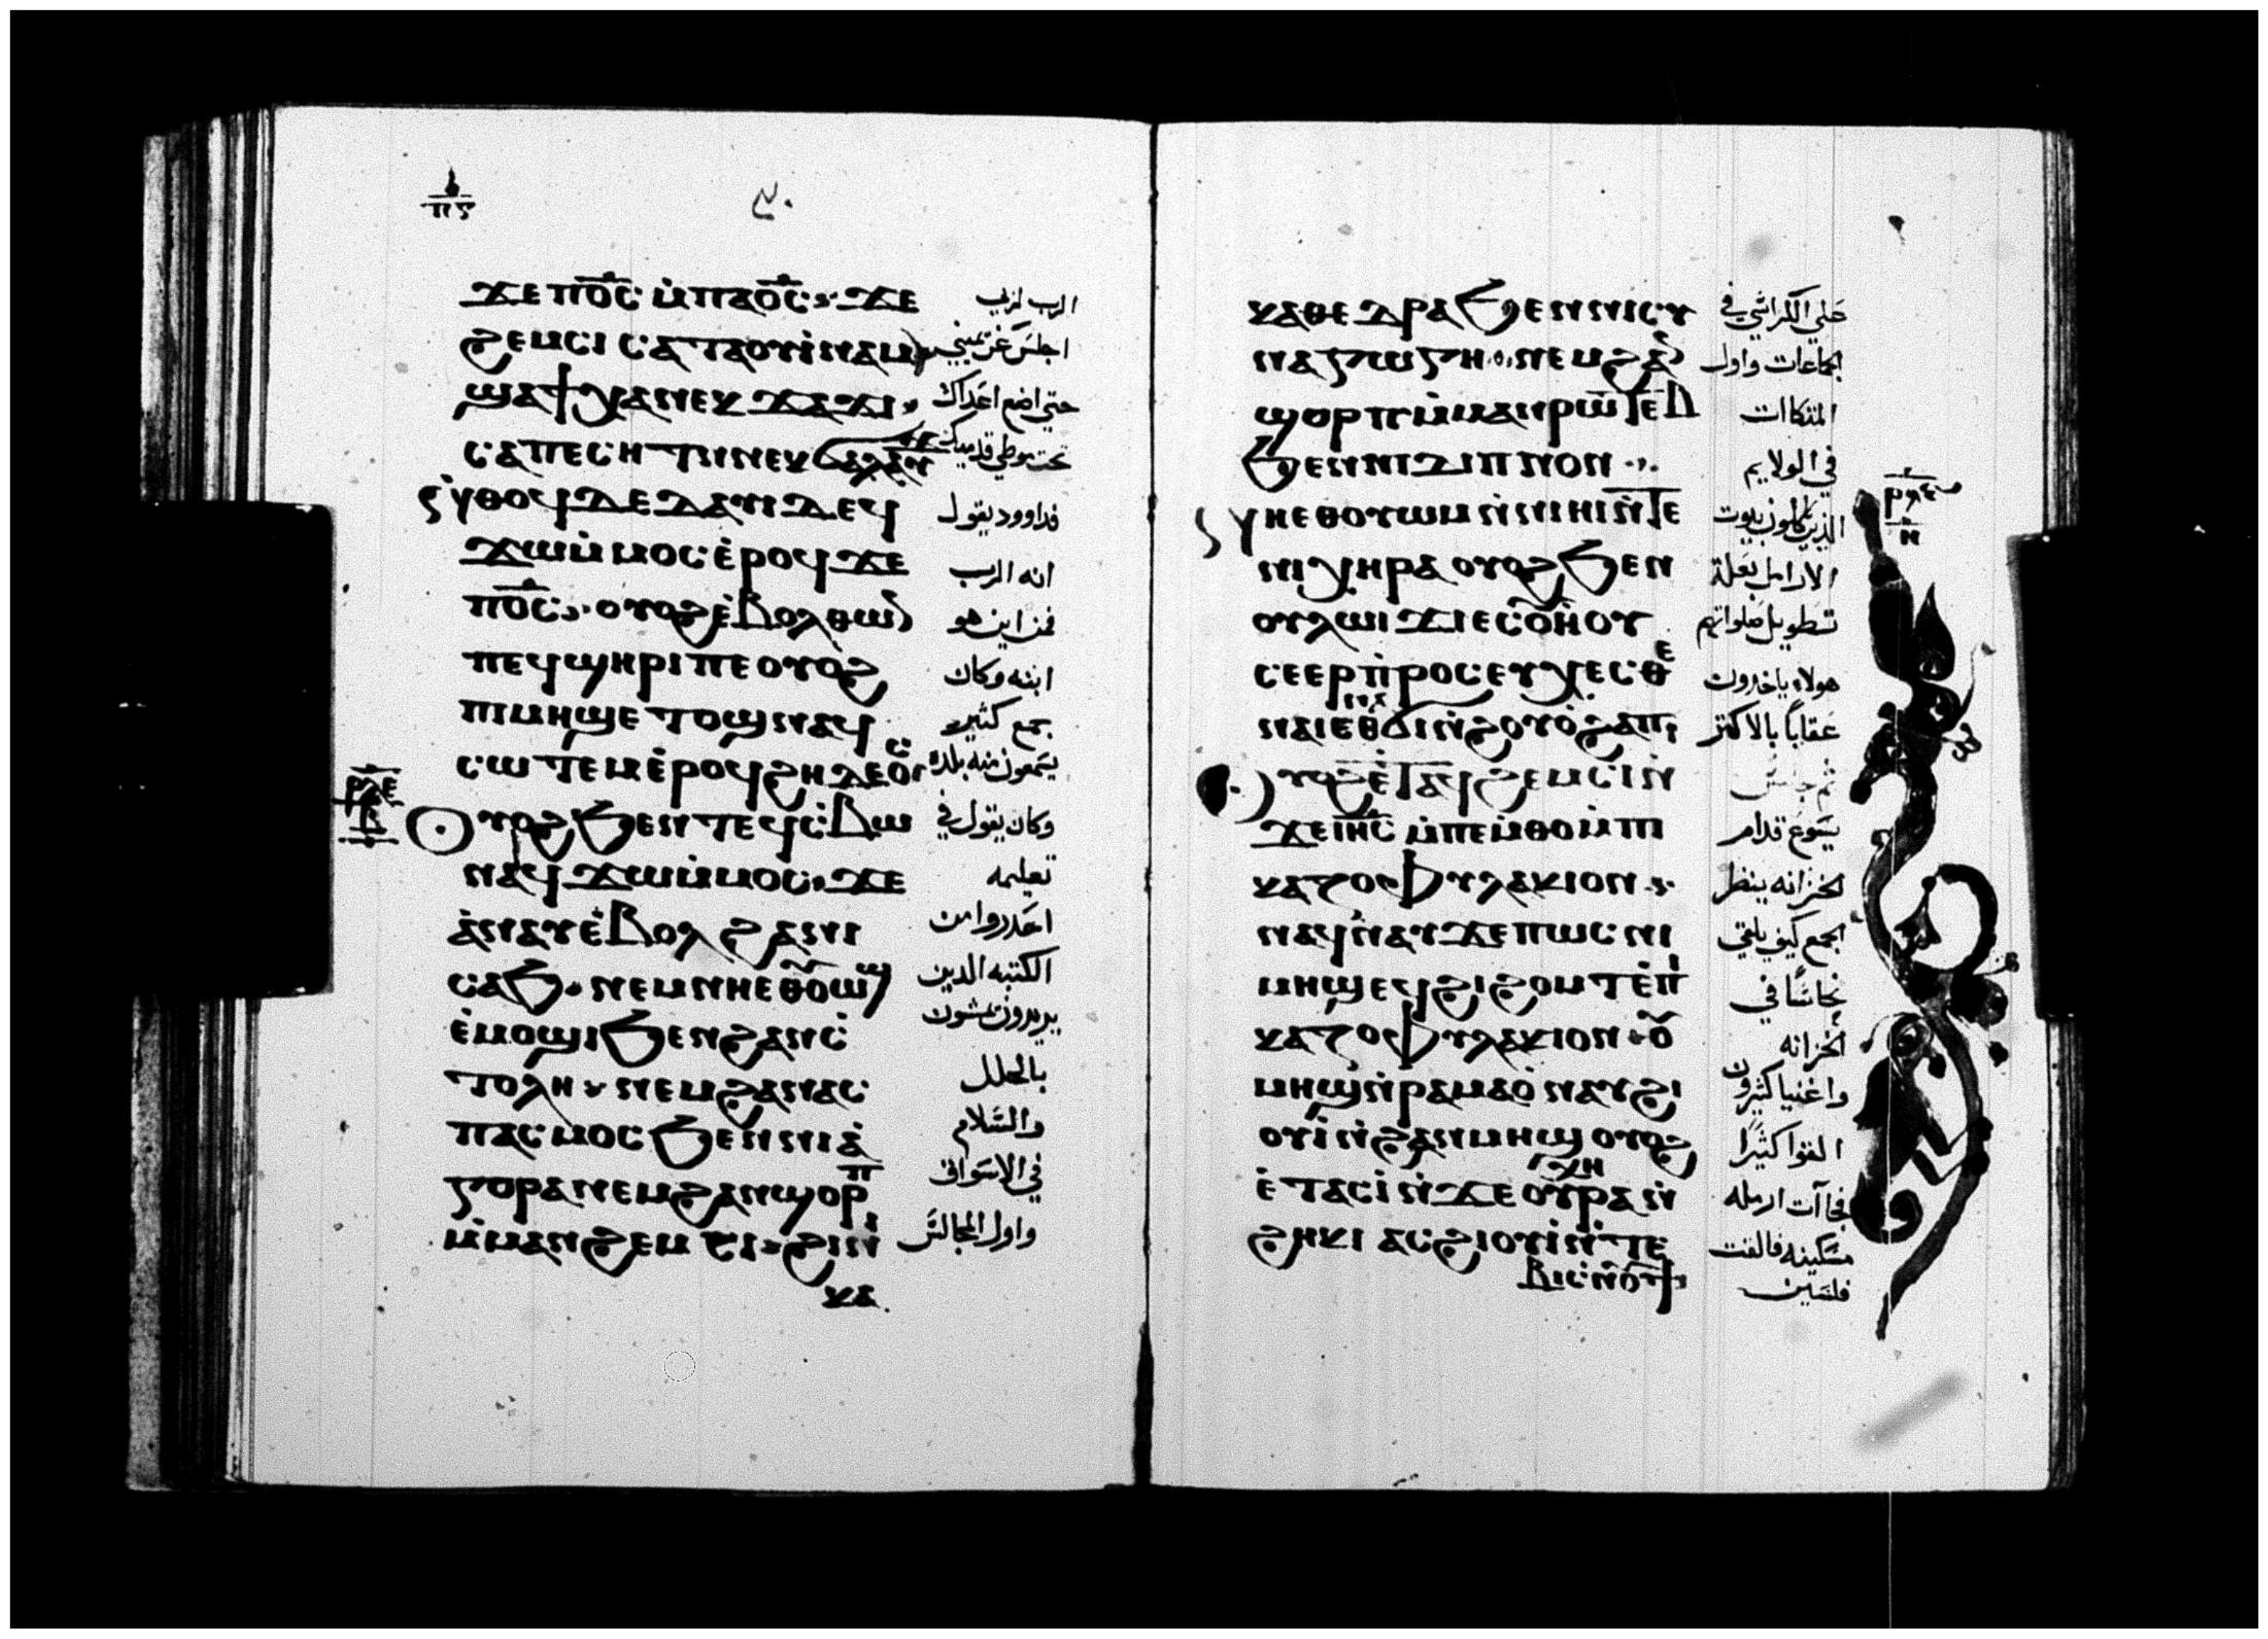 ⲡⲋ
ϫⲉ ⲡⲟ̅ⲥ̅ ⲙ̀ⲡⲁⲟ̅ⲥ̅ ϫⲉ
الرب لربي
ϩⲉⲙⲥⲓ ⲥⲁⲧⲁⲟⲩⲓ̀ⲛⲁⲙ
اجلس عن يميني
ϣⲁϯⲭⲁⲛⲉⲕϫⲁϫⲓ
حتي اضع اعداك
ⲥⲁⲡⲉⲥⲏⲧ ⲛ̀ⲛⲉⲕϭⲁⲗⲁⲩϫ
تحت موطي قدميك
ⲛ̀ⲑⲟϥ ⲇⲉ ⲇⲁⲩⲓⲇ ⲉϥ
فداوود يقول
ϫⲱ ⲙ̀ⲙⲟⲥ ⲉ̀ⲣⲟϥ ϫⲉ
انه الرب
ⲡⲟ̅ⲥ̅ ⲟⲩⲟϩ ⲉ̀ⲃⲟⲗⲑⲱⲛ
فمن اين هو
ⲡⲉϥϣⲏⲣⲓ ⲡⲉ ⲟⲩⲟϩ
ابنه وكان
ⲡⲓⲙⲏϣ ⲉⲧⲟϣ ⲛⲁϥ
جمع كثير
ⲥⲱⲧⲉⲙ ⲉ̀ⲣⲟϥ ϩⲏⲇⲉⲟⲥ
يسمعون منه بلده
ⲣⲗⲉ
ⲃ
ⲟⲩⲟϩ ϧⲉⲛ ⲧⲉϥⲥ̀ⲃⲱ
وكان يقول في
ⲛⲁϥϫⲱ ⲙ̀ⲙⲟⲥ ϫⲉ
تعليمه
ⲁ̀ⲛⲁⲩ ⲉ̀ⲃⲟⲗ ϩⲁ ⲛⲓ
احدروا من
ⲥⲁϧ ⲛⲉⲙ ⲛⲏⲉⲑⲟⲩⲱϣ
الكتبه الدين
ⲉ̀ⲙⲟϣⲓ ϧⲉⲛ ϩⲁⲛⲥ̀
يريدون يمشون
ⲧⲟⲗⲏ ⲛⲉⲙ ϩⲁⲛⲁⲥ
بالحلل
ⲡⲁⲥⲙⲟⲥ ϧⲉⲛ ⲛⲓⲁ̀
والسلام
ⲅⲟⲣⲁ ⲛⲉⲙ ϩⲁⲛϣⲟⲣⲡ
في الاسواق
ⲙ̀ⲙⲁⲛϩⲉⲙⲥⲓ ϩⲓ ⲛⲓ
واول المجالس
ⲕⲁ
ⲕⲁⲑⲉⲇⲣⲁ ϧⲉⲛ ⲛⲓⲥⲩ
علي الكراسي في
ⲛⲁⲅⲱⲅⲏ ⲛⲉⲙ ϩⲁⲛ
الجماعات واول
ϣⲟⲣⲡ ⲙ̀ⲙⲁⲛⲣⲱⲧⲉⲃ
المتكاات
ϧⲉⲛ ⲛⲓⲇⲓⲡⲛⲟⲛ
في الولايم
ⲛⲏⲉⲑⲟⲩⲱⲙ ⲛ̀ⲛⲓⲏⲓ ⲛ̀ⲧⲉ
الذين ياكلون بيوت
ⲛⲓⲭⲏⲣⲁ ⲟⲩⲟϩ ϧⲉⲛ
الارامل بعلة
ⲟⲩⲗⲱⲓϫⲓ ⲉⲥⲟⲩⲏⲟⲩ
تطويل صلواتهم
ⲥⲉⲉⲣⲡ̀ⲣⲟⲥⲉⲩⲭⲉⲥⲑⲉ
هولاء ياخدون
ⲛⲁⲓ ⲉⲑⲛⲁϭⲓ ⲛ̀ϩⲟⲩⲟ̀ ϩⲁⲡ
عقابا بالاكتر
ⲣⲗⲉ
ⲏ
ⲟⲩⲟϩ ⲉ̀ⲧⲁϥϩⲉⲙⲥⲓ ⲛ̀
ثم جلس
ϫⲉ ⲓⲏ̅ⲥ̅ ⲙ̀ⲡⲉⲙ̀ⲑⲟ ⲙ̀ⲡⲓ
يسوع قدام
ⲅⲁⲍⲟⲫⲩⲗⲁⲕⲓⲟⲛ
الخزانه ينظر
ⲛⲁϥⲛⲁⲩ ϫⲉ ⲡⲱⲥ ⲡⲓ
الجمع كيف يلقي
ⲙⲏϣ ⲉϥϩⲓϩⲟⲙⲧ ⲉ̀ⲡⲓ
نحاسا في
ⲅⲁⲍⲟⲫⲩⲗⲁⲕⲓⲟⲛ ⲟⲩ
الخزانه
ⲙⲏϣ ⲛ̀ⲣⲁⲙⲁⲟ̀ ⲛⲁⲩϩⲓ
واغنيا كثيرون
ⲟⲩⲓ̀ ⲛ̀ϩⲁⲛⲙⲏϣ ⲟⲩⲟϩ
القوا كثيرا
ⲉ̀ⲧⲁⲥⲓ̀ ⲛ̀ϫⲉ ⲟⲩⲭⲏⲣⲁ ⲛ̀
فجاآت ارمله
ϩⲏⲕⲓ ⲁⲥϩⲓⲟⲩⲓ̀ ⲛ̀ⲧⲉ
مسكينه فالقت
ⲃⲓ ⲥⲛⲟⲩϯ
فلسين